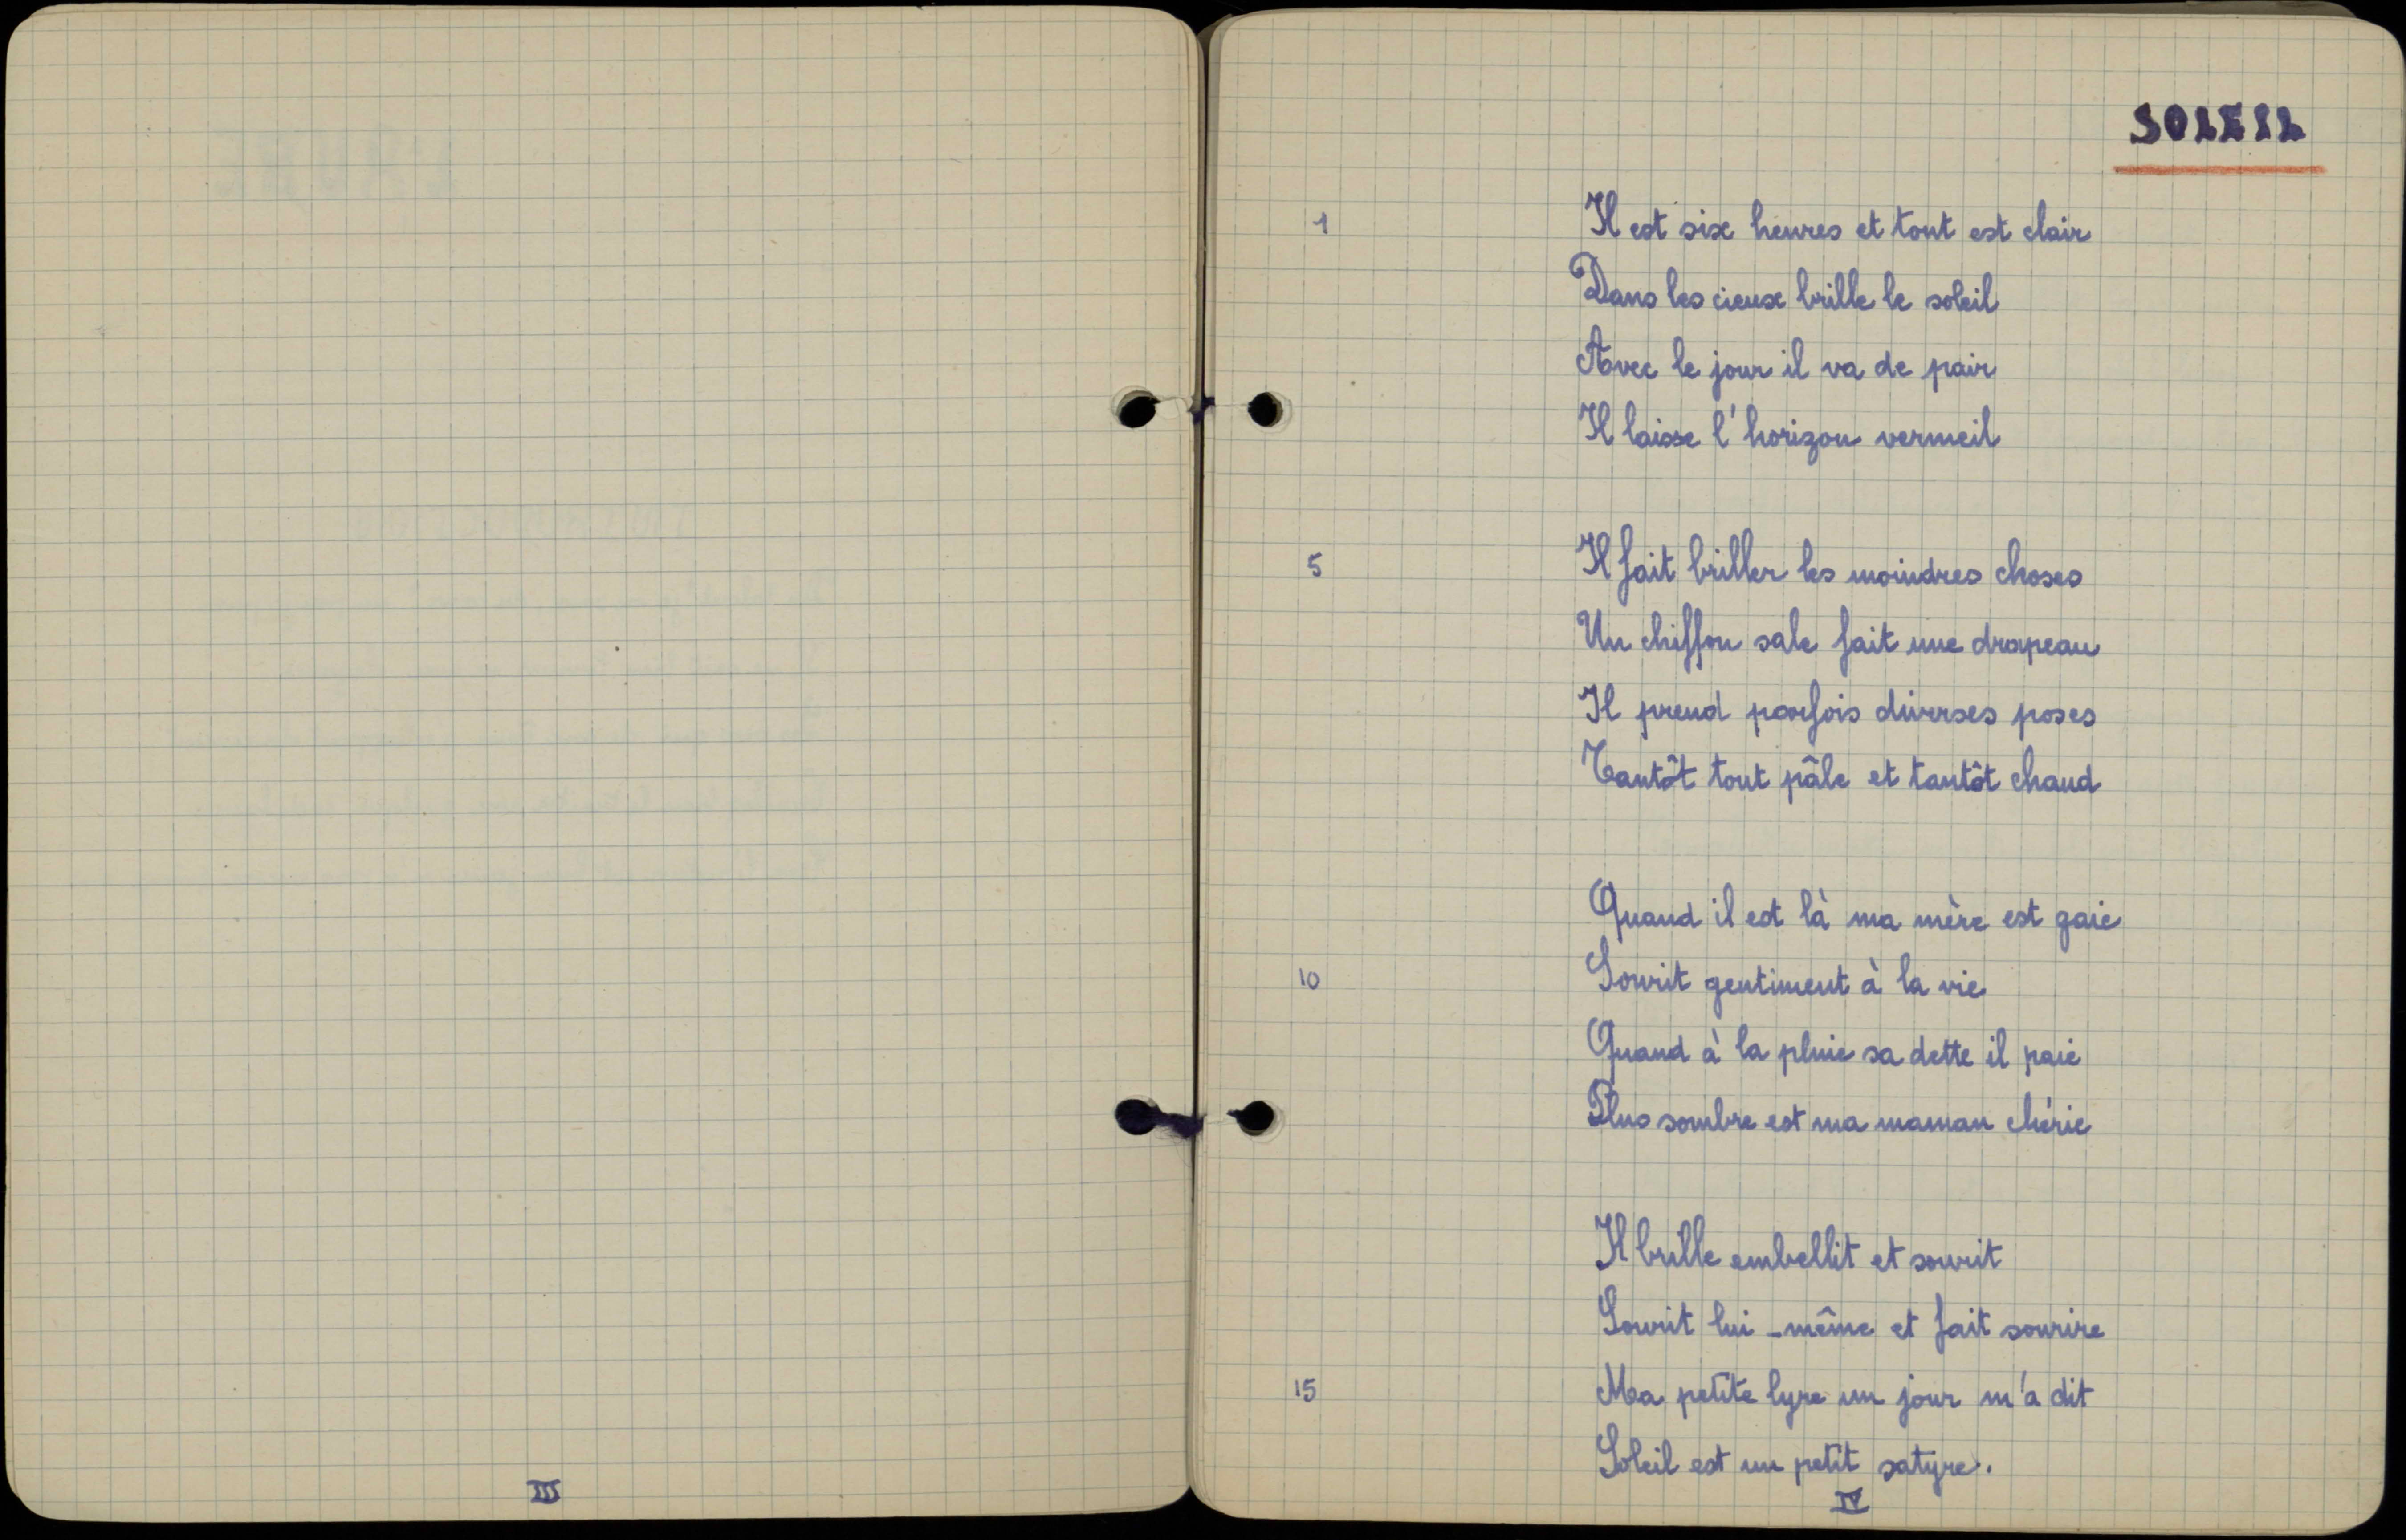 III
SOLEIL
1 Il est six heures et tout est clair
Dans les cieux brille le soleil
Avec le jour il va de pair
Il laisse l'horizon vermeil
5 Il fait briller les moindres choses
Un chiffon sale fait une drapeau
Il prend parfois diverses poses
Tantôt tout pâle et tantôt chaud
Quand il est là ma mère est gaie
10 Sourit gentiment à la vie
Quand à la pluie sa dette il paie
Plus sombre est ma maman chérie
Il brille embellit et sourit
Sourit lui-même et fait sourire
15 Ma petite lyre un jour m'a dit
Soleil est un petit satyre.
IV